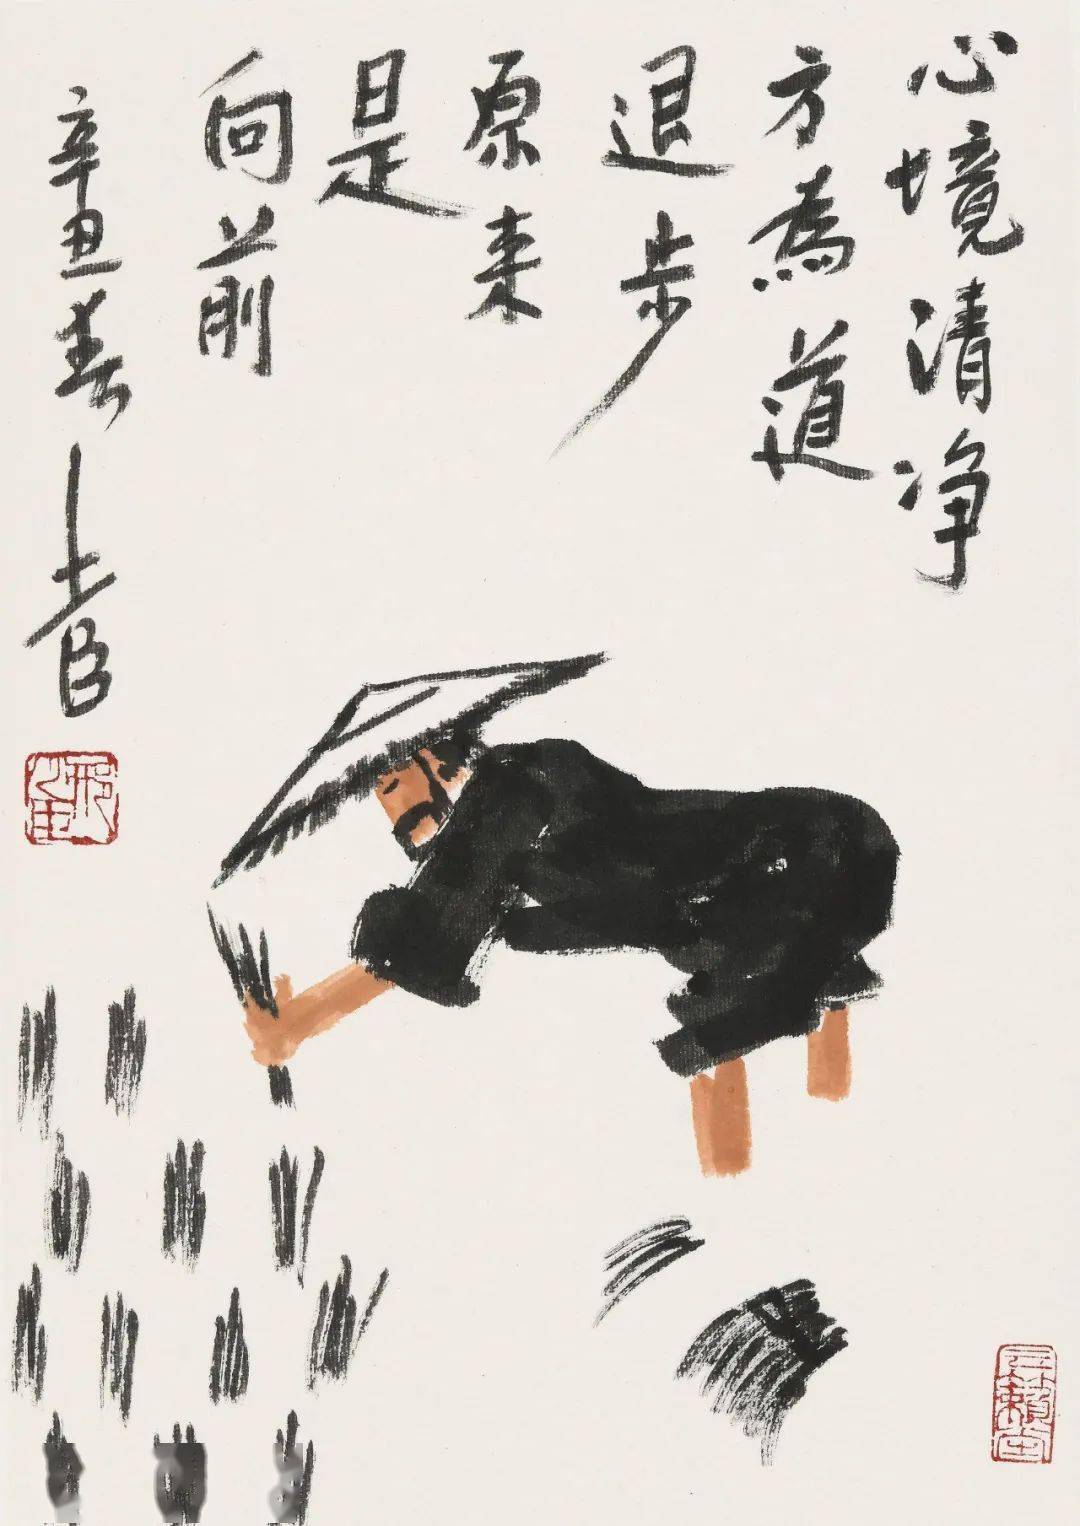 心境清净
方為道
退步
原来
是
向前
辛丑春少臣